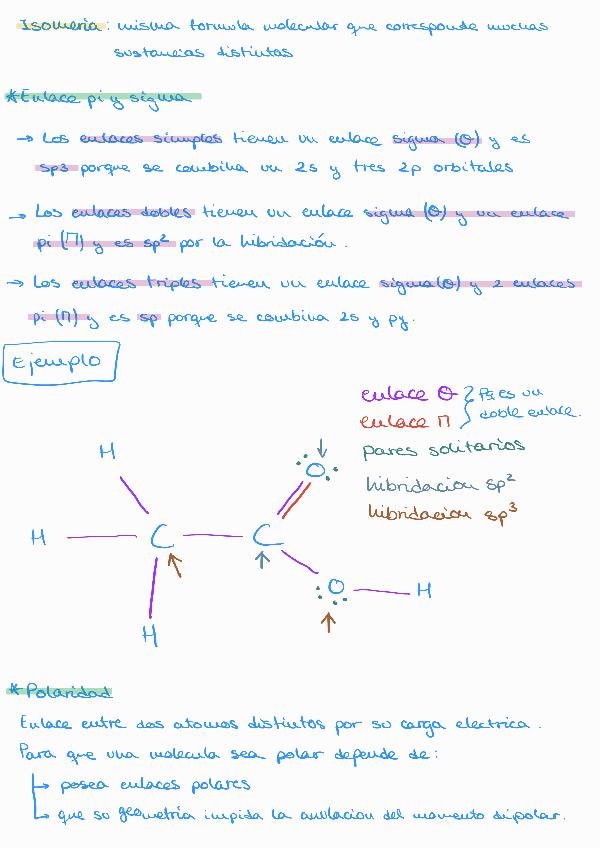 Isomeria: misma formula molecular que corresponde muchas
sustancias distintas
*Enlace pi y sigma
→ Los enlaces simples tienen un enlace sigma (Θ) y es
sp3 porque se combina un 2s y tres 2p orbitales
→ Los enlaces dobles tienen un enlace sigma (Θ) y un enlace
pi (Π) y es sp² por la hibridación.
→ Los enlaces triples tienen un enlace sigma (Θ) y 2 enlaces
pi (Π) y es sp porque se combina 2s y py.
Ejemplo
enlace Θ
enlace Π
Pq es un
doble enlace.
pares solitarios
hibridacion sp²
hibridacion sp³
H
O
H
C
C
O
H
H
*Polaridad
Enlace entre dos atomos distintos por su carga electrica.
Para que una molecula sea polar depende de:
→ posea enlaces polares
→ que su geometría impida la anulacion del momento dipolar.